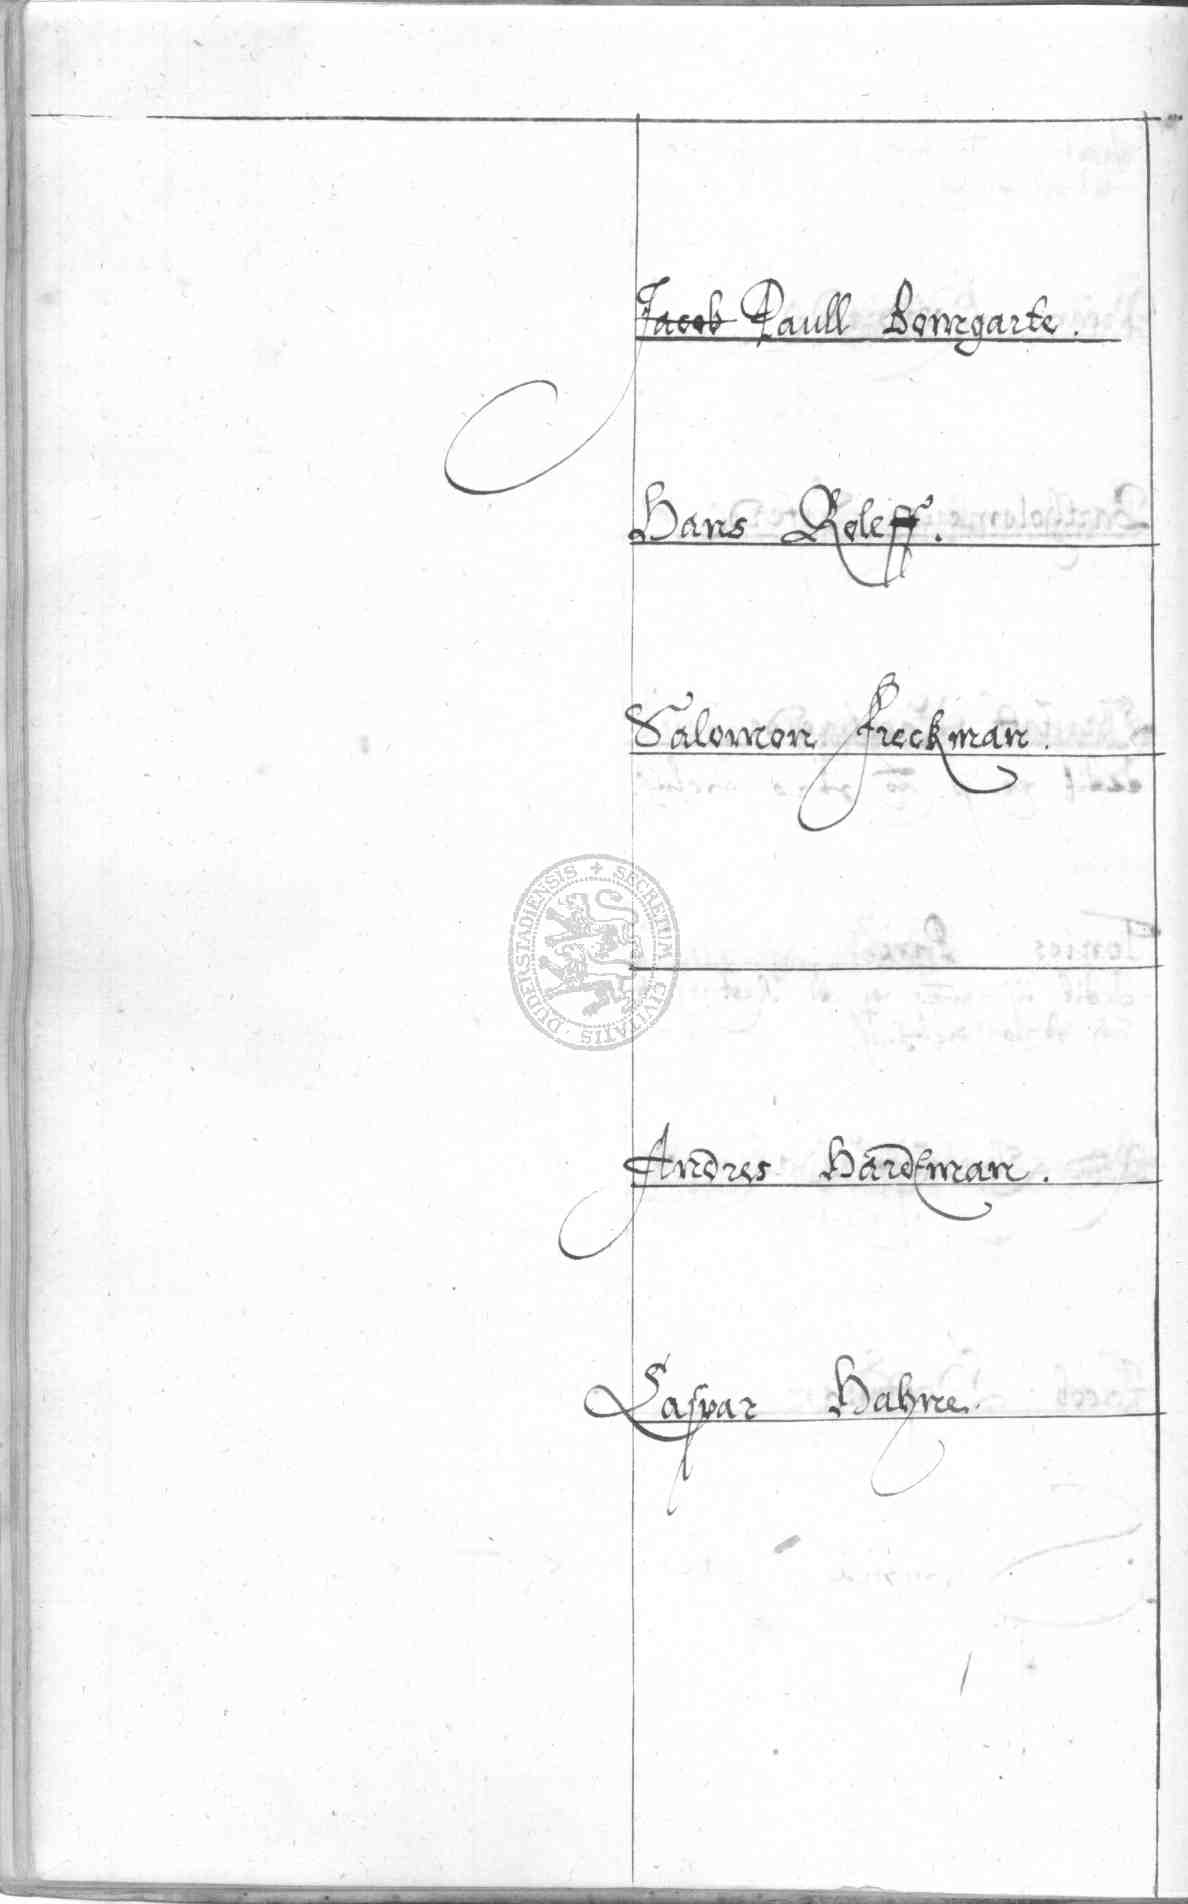 Jacob Paull Bomgarte.
Hans Roleff.
Salomon Freckman.
SECRETUM CIVITATIS DUDERSTADIENSIS
Andres Hardtman.
Caspar Hahne.